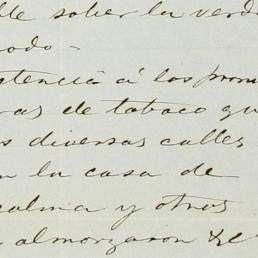 lle saber la verd
odo -
stencia á los pron
ras de tabaco qu
s diversas calles
n la casa de
calma y otros
almorzaron &c